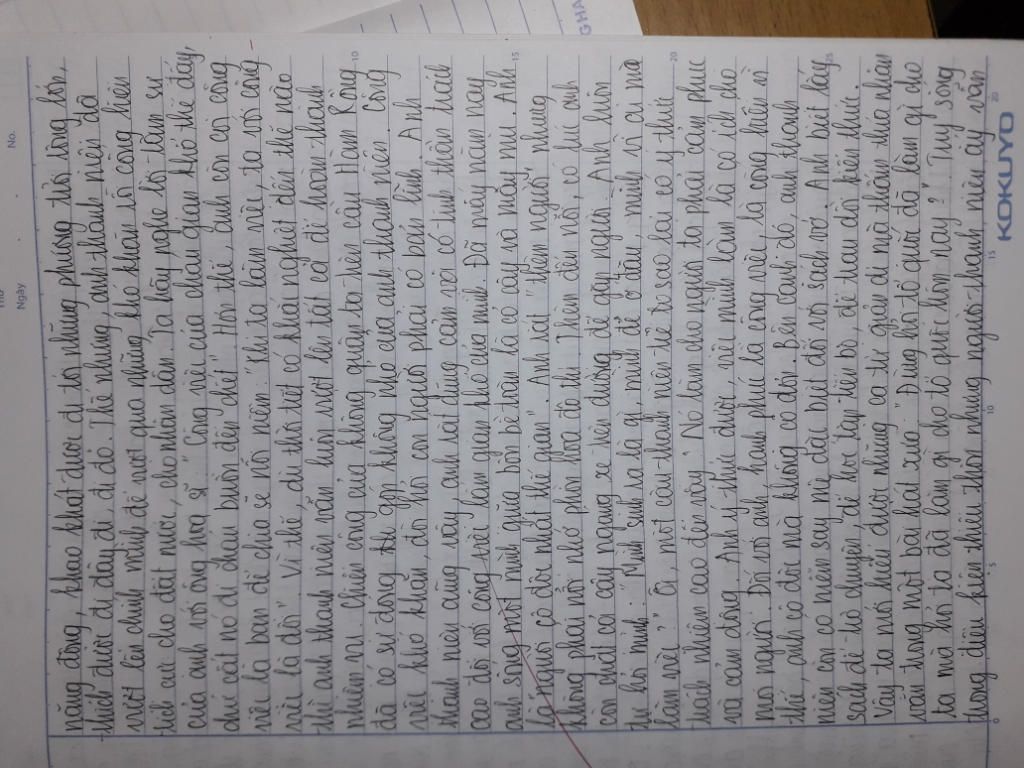 No.
Ngày
năng động, khao khát được đi tới những phương trời rộng lớn,
thích được đi đây đi đó. Thế nhưng, anh thanh niên đã
vượt lên chính mình để vượt qua những khó khăn và cống hiến
tích cực cho đất nước, cho nhân dân. Ta hãy nghe lời tâm sự
của anh với ông họa sĩ: "Công việc của cháu gian khổ thế đấy,
chứ cất nó đi cháu buồn đến chết". Hơn thế, anh còn coi công
việc là bạn để chia sẻ nỗi niềm: "Khi ta làm việc, ta với công
việc là đôi". Vì thế, dù thời tiết có khắc nghiệt đến thế nào
thì anh thanh niên vẫn luôn vượt lên tất cả để hoàn thành
nhiệm vụ. Chiến công của không quân ta trên cầu Hàm Rồng
đã có sự đóng góp không nhỏ của anh thanh niên. Công
việc khó khăn, đòi hỏi con người phải có bản lĩnh. Anh
thanh niên cũng vậy, anh rất dũng cảm và có tinh thần trách
cao đối với công việc lắm gian khổ của mình. Đã mấy năm nay
anh sống một mình giữa bốn bề toàn là cỏ cây và mây mù. Anh
là người "cô độc nhất thế gian". Anh rất "thèm người", nhưng
không phải nỗi nhớ phồn hoa đô thị. Thèm đến nỗi, có lúc anh
còn chặt cả cây ngang xe trên đường để gặp người. Anh luôn
tự hỏi mình: "Mình sinh ra là gì, mình đẻ ở đâu, mình vì ai mà
làm việc?" Ôi, một cậu thanh niên trẻ tuổi sao lại có ý thức
trách nhiệm cao đến vậy! Nó làm cho người ta phải cảm phục
và cảm động. Anh ý thức được, việc mình làm là có ích cho
mọi người. Đối với anh, hạnh phúc là công việc, là cống hiến. Vì
thế, anh cô độc mà không cô đơn. Bên cạnh đó, anh thanh
niên còn có niềm say mê đặc biệt đối với sách vở. Anh biết lấy
sách để trò chuyện, để học tập tiến bộ, để trau dồi kiến thức.
Vậy ta mới hiểu được những ca từ giản dị mà thấm thía nhân
văn trong một bài hát xưa: "Đừng hỏi tổ quốc đã làm gì cho
ta mà hỏi ta đã làm gì cho tổ quốc hôm nay?" Tuy sống
trong điều kiện thiếu thốn nhưng người thanh niên ấy vẫn
0 5 10 15 20
10
15
20
25
KOKUYO